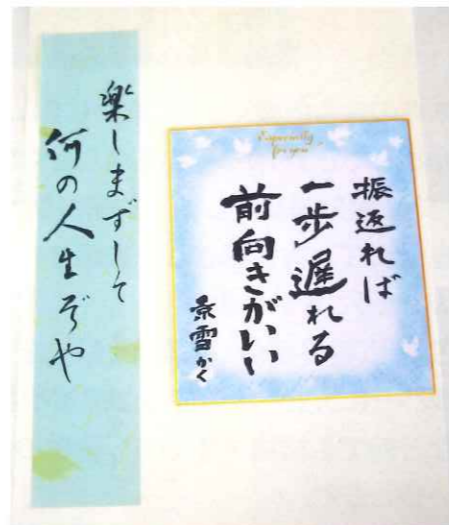 Especially
for you
振返れば
一歩遅れる
前向きがいい
景雪かく
楽しまずして
何の人生ぞや